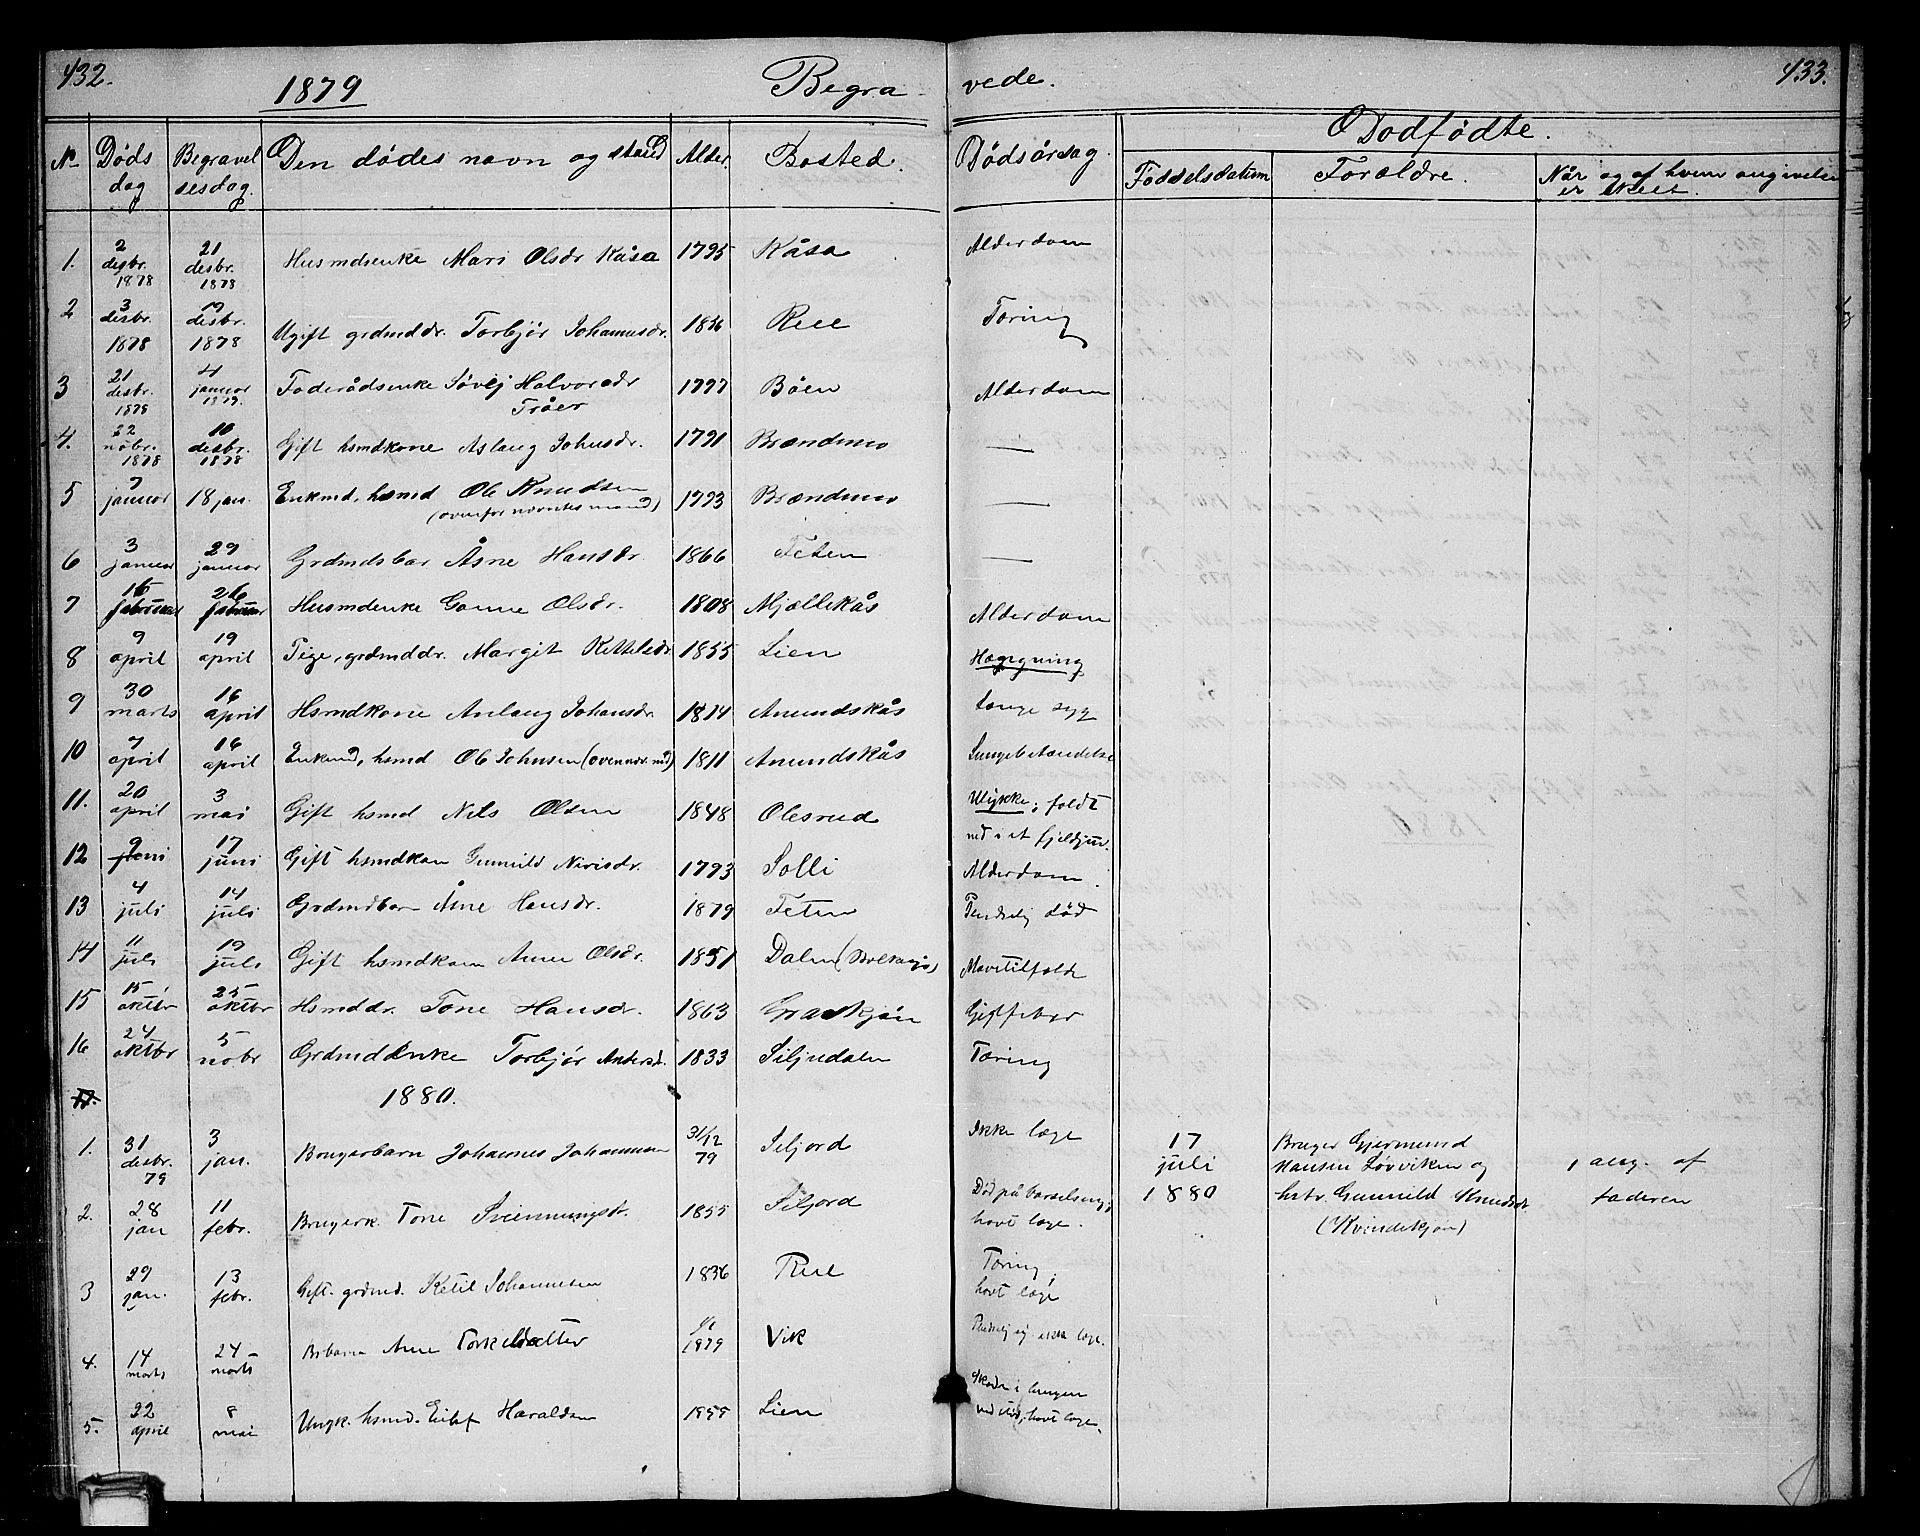 432.
1879
Begra- vede.
433.
No Døds dag Begravelsesdag. Den dødes navn og stand Alder. Bosted. Dødsårsag. Dodfødte.
Føddelsdatum Forældre. Når og af hvem angivelse er skeet.
1. 2 desbr. 1878 21 desbr. 1878 Husmdsenke Mari Olsdr Kåsa 1795 Kåsa Alderdom
2 3 desbr. 1878 19 desbr. 1878 Ugift grdmddr. Torbjør Johannesdr. 1836 Rue Tæring
3 21 desbr. 1878 4 januar 1879. Føderådsenke Søvej Halvorsdr Tråer 1797 Bøen Alderdom
4. 22 nobr. 1878 10 desbr. 1878 Gift hsmdkone Aslaug Johnsdr. 1791 Brændmo —
5 7 januar 18 jan. Enkmd, hsmd Ole Knudsen (ovenfor nævntes mand) 1793 Brændmo —
6 3 januar 29 januar Grdmdsbar Åsne Hansdr 1866 Teten —
7 16 februar 26 februar Husmdenke Gonne Olsdr. 1808 Mjællekås Alderdom
8 9 april 19 april Pige, grdmddr. Margit Kittelsdr 1855 Lien Hægning
9 30 marts 16 april Hsmdkone Anlaug Johansdr 1814 Amundskås Lunge syg
10 7 april 16 april Enkmd, hsmd Ole Johnsen (ovennæv. md) 1811 Amundskås Lungebetændelse
11. 20 april 3 mai Gift hsmd Nils Olsen 1848 Olesrud Ulykke; faldt ned i et fjeldjuv.
12 9 juni 17 juni Gift hsmdkon Gunnild Nirisdr. 1793 Solli Alderdom.
13 4 juli 14 juli Grdmdbarn Åsne Hansdr. 1879 Teten Pludselig død
14 11 juli 19 juli Gift hsmdkone Anne Olsdr. 1851 Dalen Mavetilfælde
15 15 oktbr 25 oktbr Hsmddr. Tone Hansdr. 1863 Graskjøn Gigtfeber
16 24 oktbr 5 nobr Grdmddenke Torbjør Andersd. 1833 Siljudalen Tæring
17.
1880.
1. 31 desbr. 79 3 jan. Brugerbarn Johannes Johannesen 31/12 79 Seljord Ikke læge
17 juli 1880 Bruger Gjermund Hansen Løvviken og hstr. Gunnild Knudsdr (Kvindekjøn) 1 aug. af faderen
2. 28 jan 11 febr. Brugerk. Tone Sveinnungsdr. 1855 Seljord Død på barselseng; havt læge.
3 29 jan. 13 febr. Gift. grdmd. Ketil Johannesen 1836 Rue Tæring; havt læge
4. 14 marts 24 marts Brbarn Anne Torkelsdatter 1879 Vik Pludselig ikke læge.
5. 22 april 8 mai Ungk. hsmd. Eilef Haraldsen 1855 Lien Skade i lungen ved stød, havt læge.